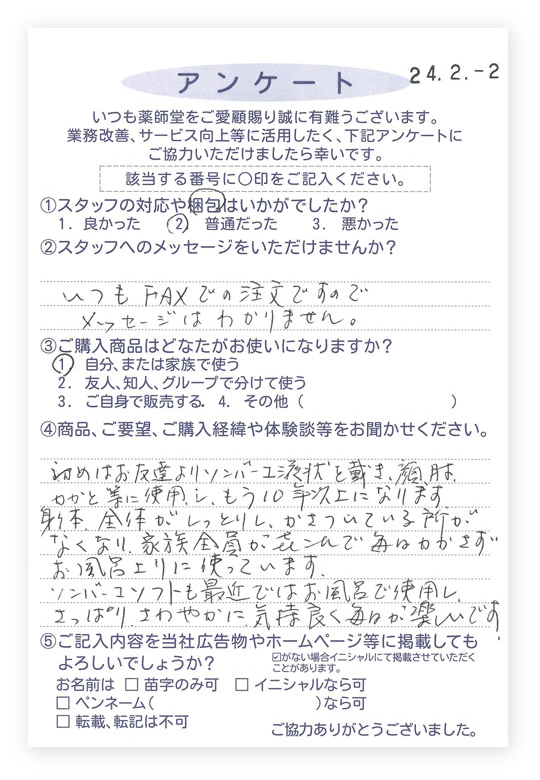 アンケート
24.2.-2
いつも薬師堂をご愛顧賜り誠に有難うございます。
業務改善、サービス向上等に活用したく、下記アンケートに
ご協力いただけましたら幸いです。
該当する番号に〇印をご記入ください。
①スタッフの対応や梱包はいかがでしたか?
1. 良かった 2. 普通だった 3. 悪かった
②スタッフへのメッセージをいただけませんか?
いつもFAXでの注文ですので
メッセージはわかりません。
③ご購入商品はどなたがお使いになりますか?
1. 自分、または家族で使う
2. 友人、知人、グループで分けて使う
3. ご自身で販売する. 4. その他( )
④商品、ご要望、ご購入経緯や体験談等をお聞かせください。
初めはお友達よりソンバーユ液状を戴き、顔、肘、
かかと等に使用し、もう10年以上になります
身体、全体がしっとりし、かさついている所が
なくなり、家族全員が喜こんで毎日かかさず
お風呂上りに使っています.
ソンバーユソフトも最近ではお風呂で使用し、
さっぱり、さわやかに気持良く毎日が楽しいです.
⑤ご記入内容を当社広告物やホームページ等に掲載しても
よろしいでしょうか?
☑がない場合イニシャルにて掲載させていただく
ことがあります。
お名前は □ 苗字のみ可 □ イニシャルなら可
□ ペンネーム( )なら可
□ 転載、転記は不可
ご協力ありがとうございました。